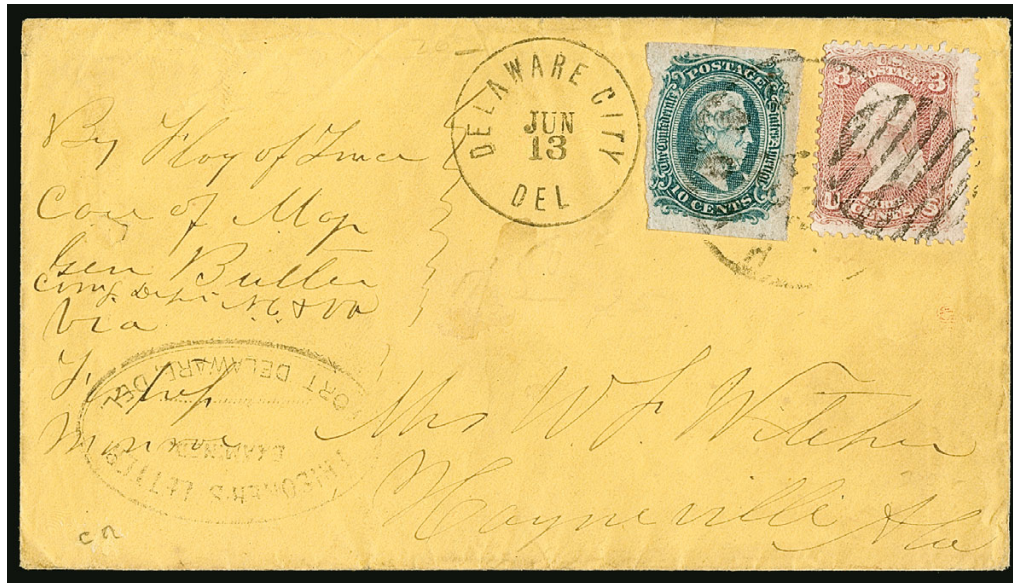 DELAWARE CITY
JUN
13
DEL
The Confederate States America
POSTAGE
10 CENTS
3 3
U.S.
POSTAGE
CENTS
By Flag of Truce
Care of Maj
Gen Butler
Comg Dept N.C & Va
Via
Fortress
Monroe
PRISONER'S LETTER
EXAMINED
FORT DELAWARE, DEL
Mrs W. F. Witcher
Hayneville Ala